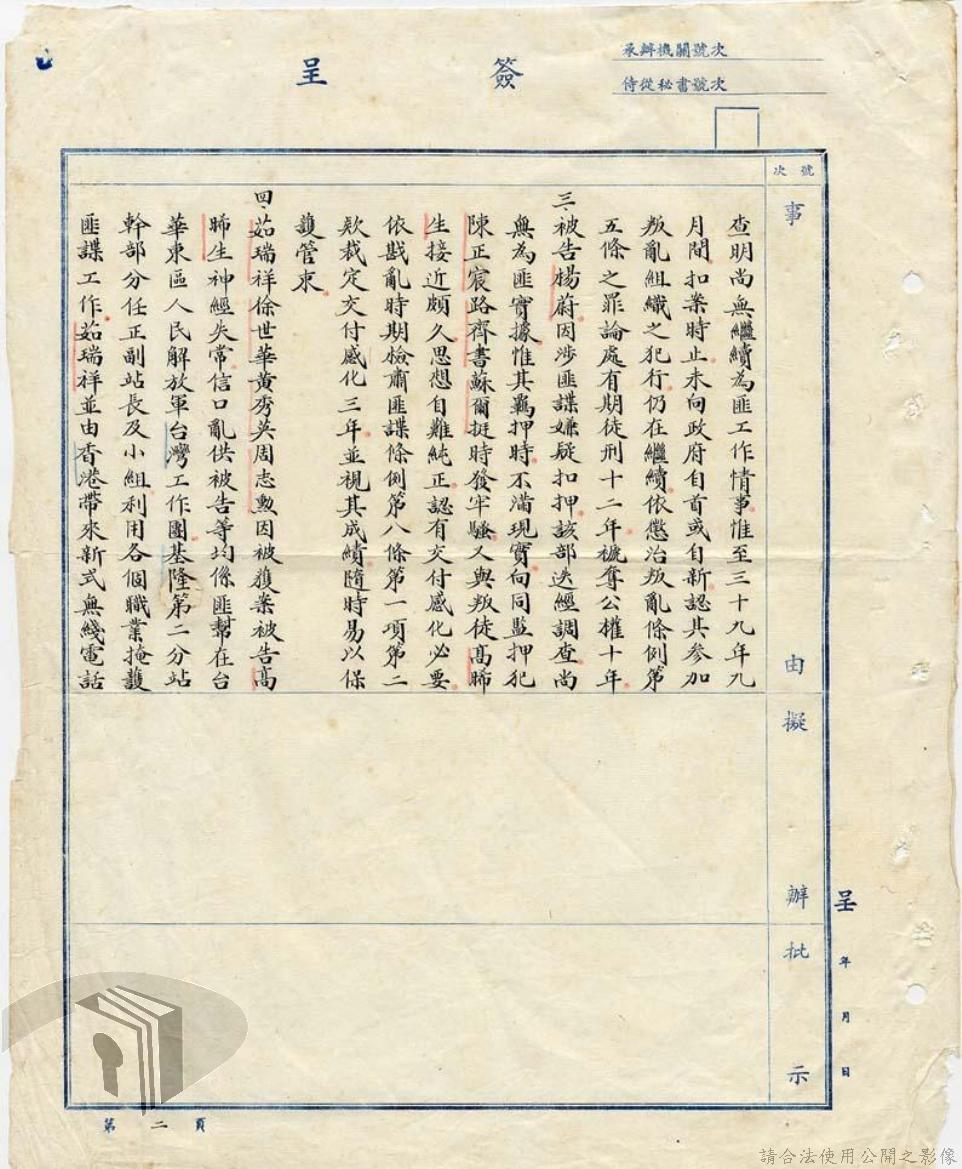 承辦機關號次
侍從秘書號次
簽呈
號次
事由
擬辦
批示
查明尚無繼續為匪工作情事惟至三十九年九
月間扣案時止未向政府自首或自新認其參加
叛亂組織之犯行仍在繼續依懲治叛亂條例第
五條之罪論處有期徒刑十二年褫奪公權十年
三、被告楊蔚因涉匪諜嫌疑扣押該部迭經調查尚
無為匪實據惟其羈押時不滿現實向同監押犯
陳正宸路齊書蘇爾挺時發牢騷又與叛徒高晞
生接近頗久思想自難純正認有交付感化必要
依戡亂時期檢肅匪諜條例第八條第一項第二
款裁定交付感化三年並視其成績隨時易以保
護管束
四、茹瑞祥徐世華黄秀英周志勳因被獲案被告高
晞生神經失常信口亂供被告等均係匪幫在台
華東區人民解放軍台灣工作團基隆第二分站
幹部分任正副站長及小組利用各個職業掩護
匪諜工作茹瑞祥並由香港帶來新式無綫電話
呈 年 月 日
第二頁
請合法使用公開之影像